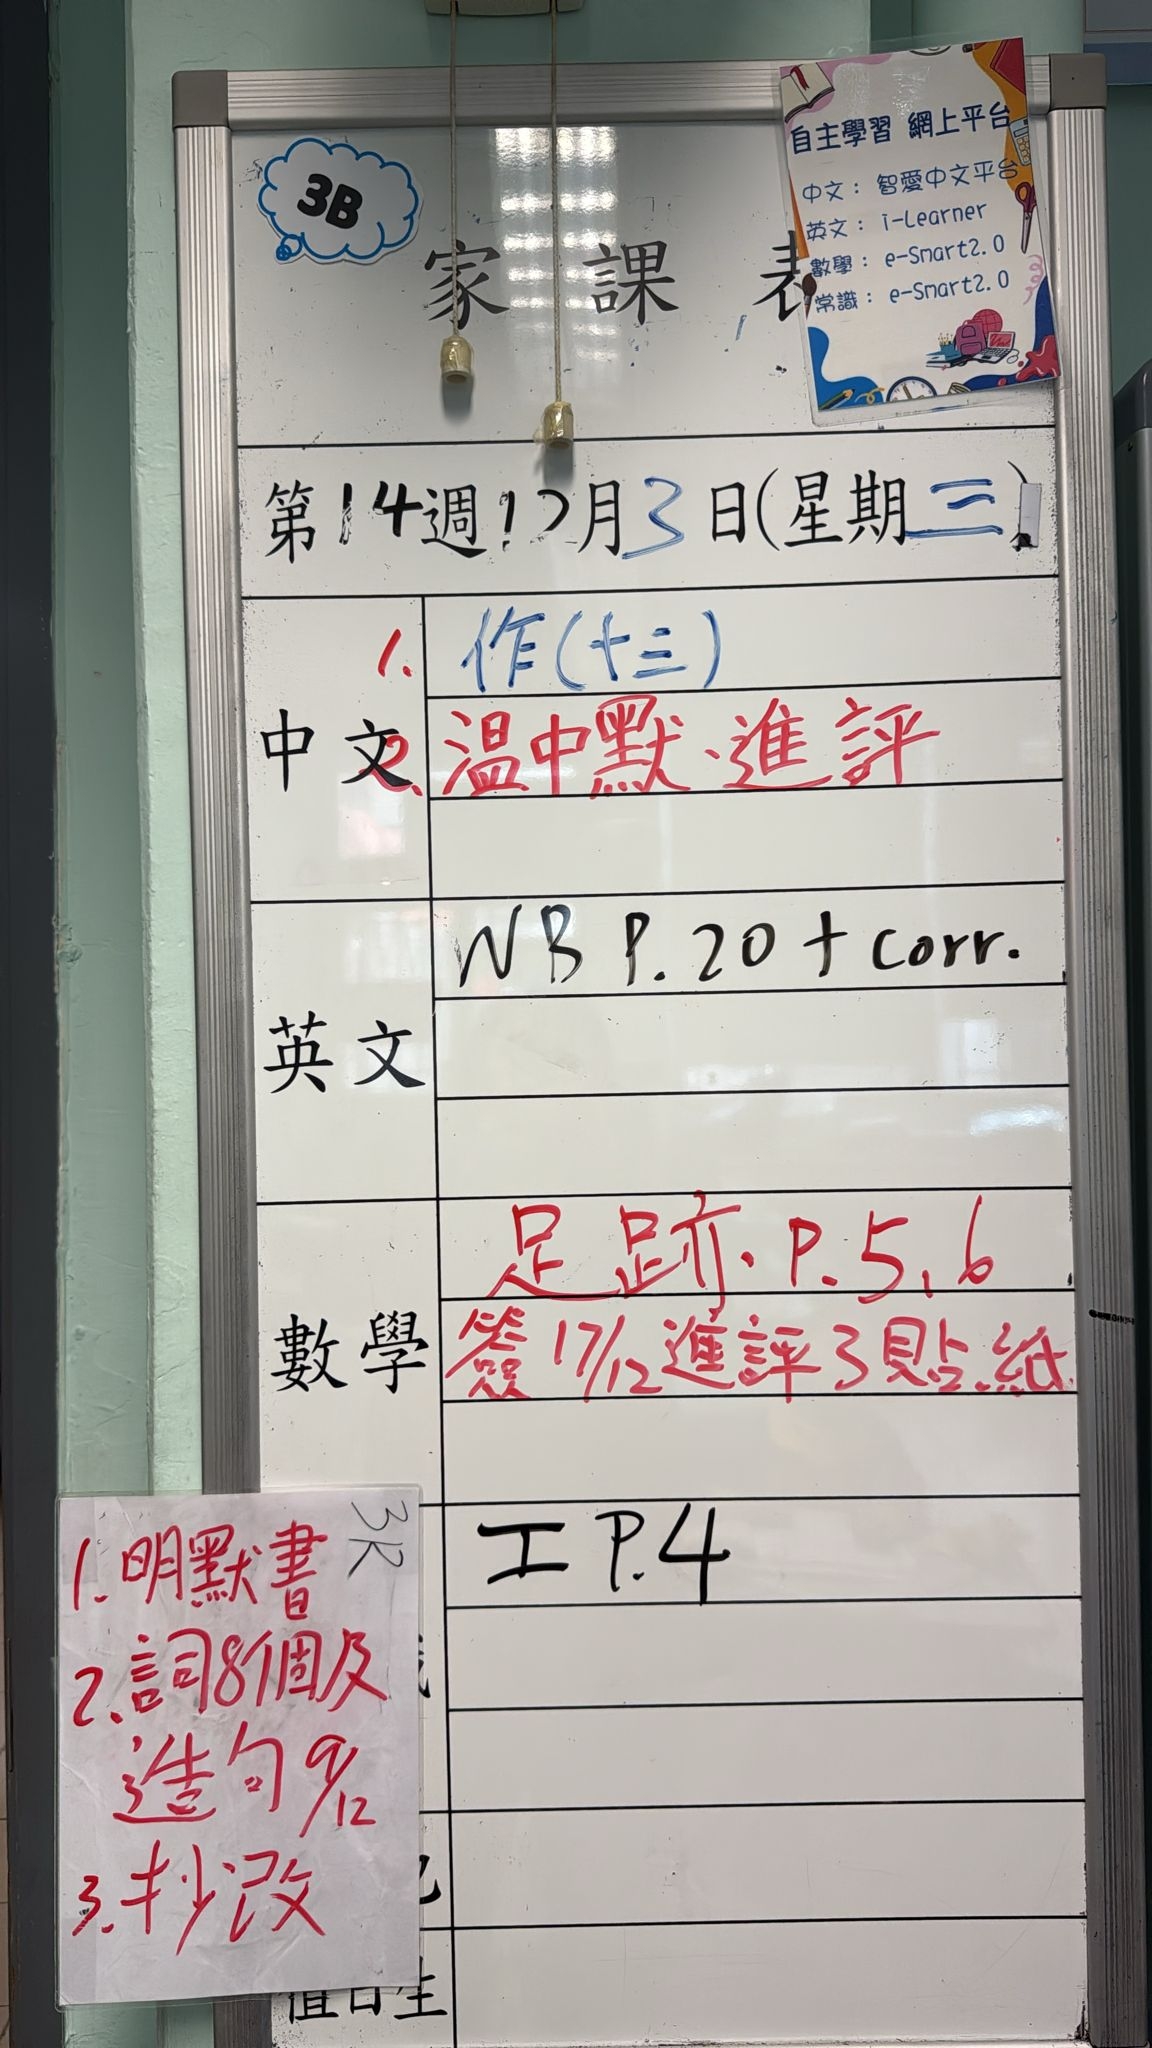 3B
家 課 表
自主學習 網上平台
中文： 智愛中文平台
英文： i-Learner
數學： e-Smart2.0
常識： e-Smart2.0
第14週12月3日(星期三)
中文
1. 作(十三)
2. 溫中默、進評
英文
NB P.20 + corr.
數學
足跡. P.5, 6
簽17/12進評3貼紙
工 P.4
1. 明默書
2. 詞8個及
造句9/12
3. 抄改
值日生